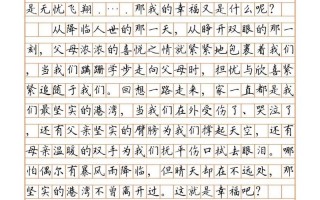 是无忧飞翔....那我的幸福又是什么呢?
从降临人世的那一天,从睁开双眼的那一
刻,父母浓浓的喜悦之情就紧紧地包裹着我们
,当我们蹒跚学步走向父母时,担忧与欣喜紧
紧追随于我们。回想一路走来,家一都是我
们最坚实的港湾,当我们在外受伤了、哭泣了
,还有父亲坚实的臂膀为我们撑起天空,还有
母亲温暖的双手为我们抚平伤口拭去眼泪。哪
怕偶尔有暴风雨降临,但晴天却在不远处,那
坚实的港湾不曾离开过。这就是幸福吧?